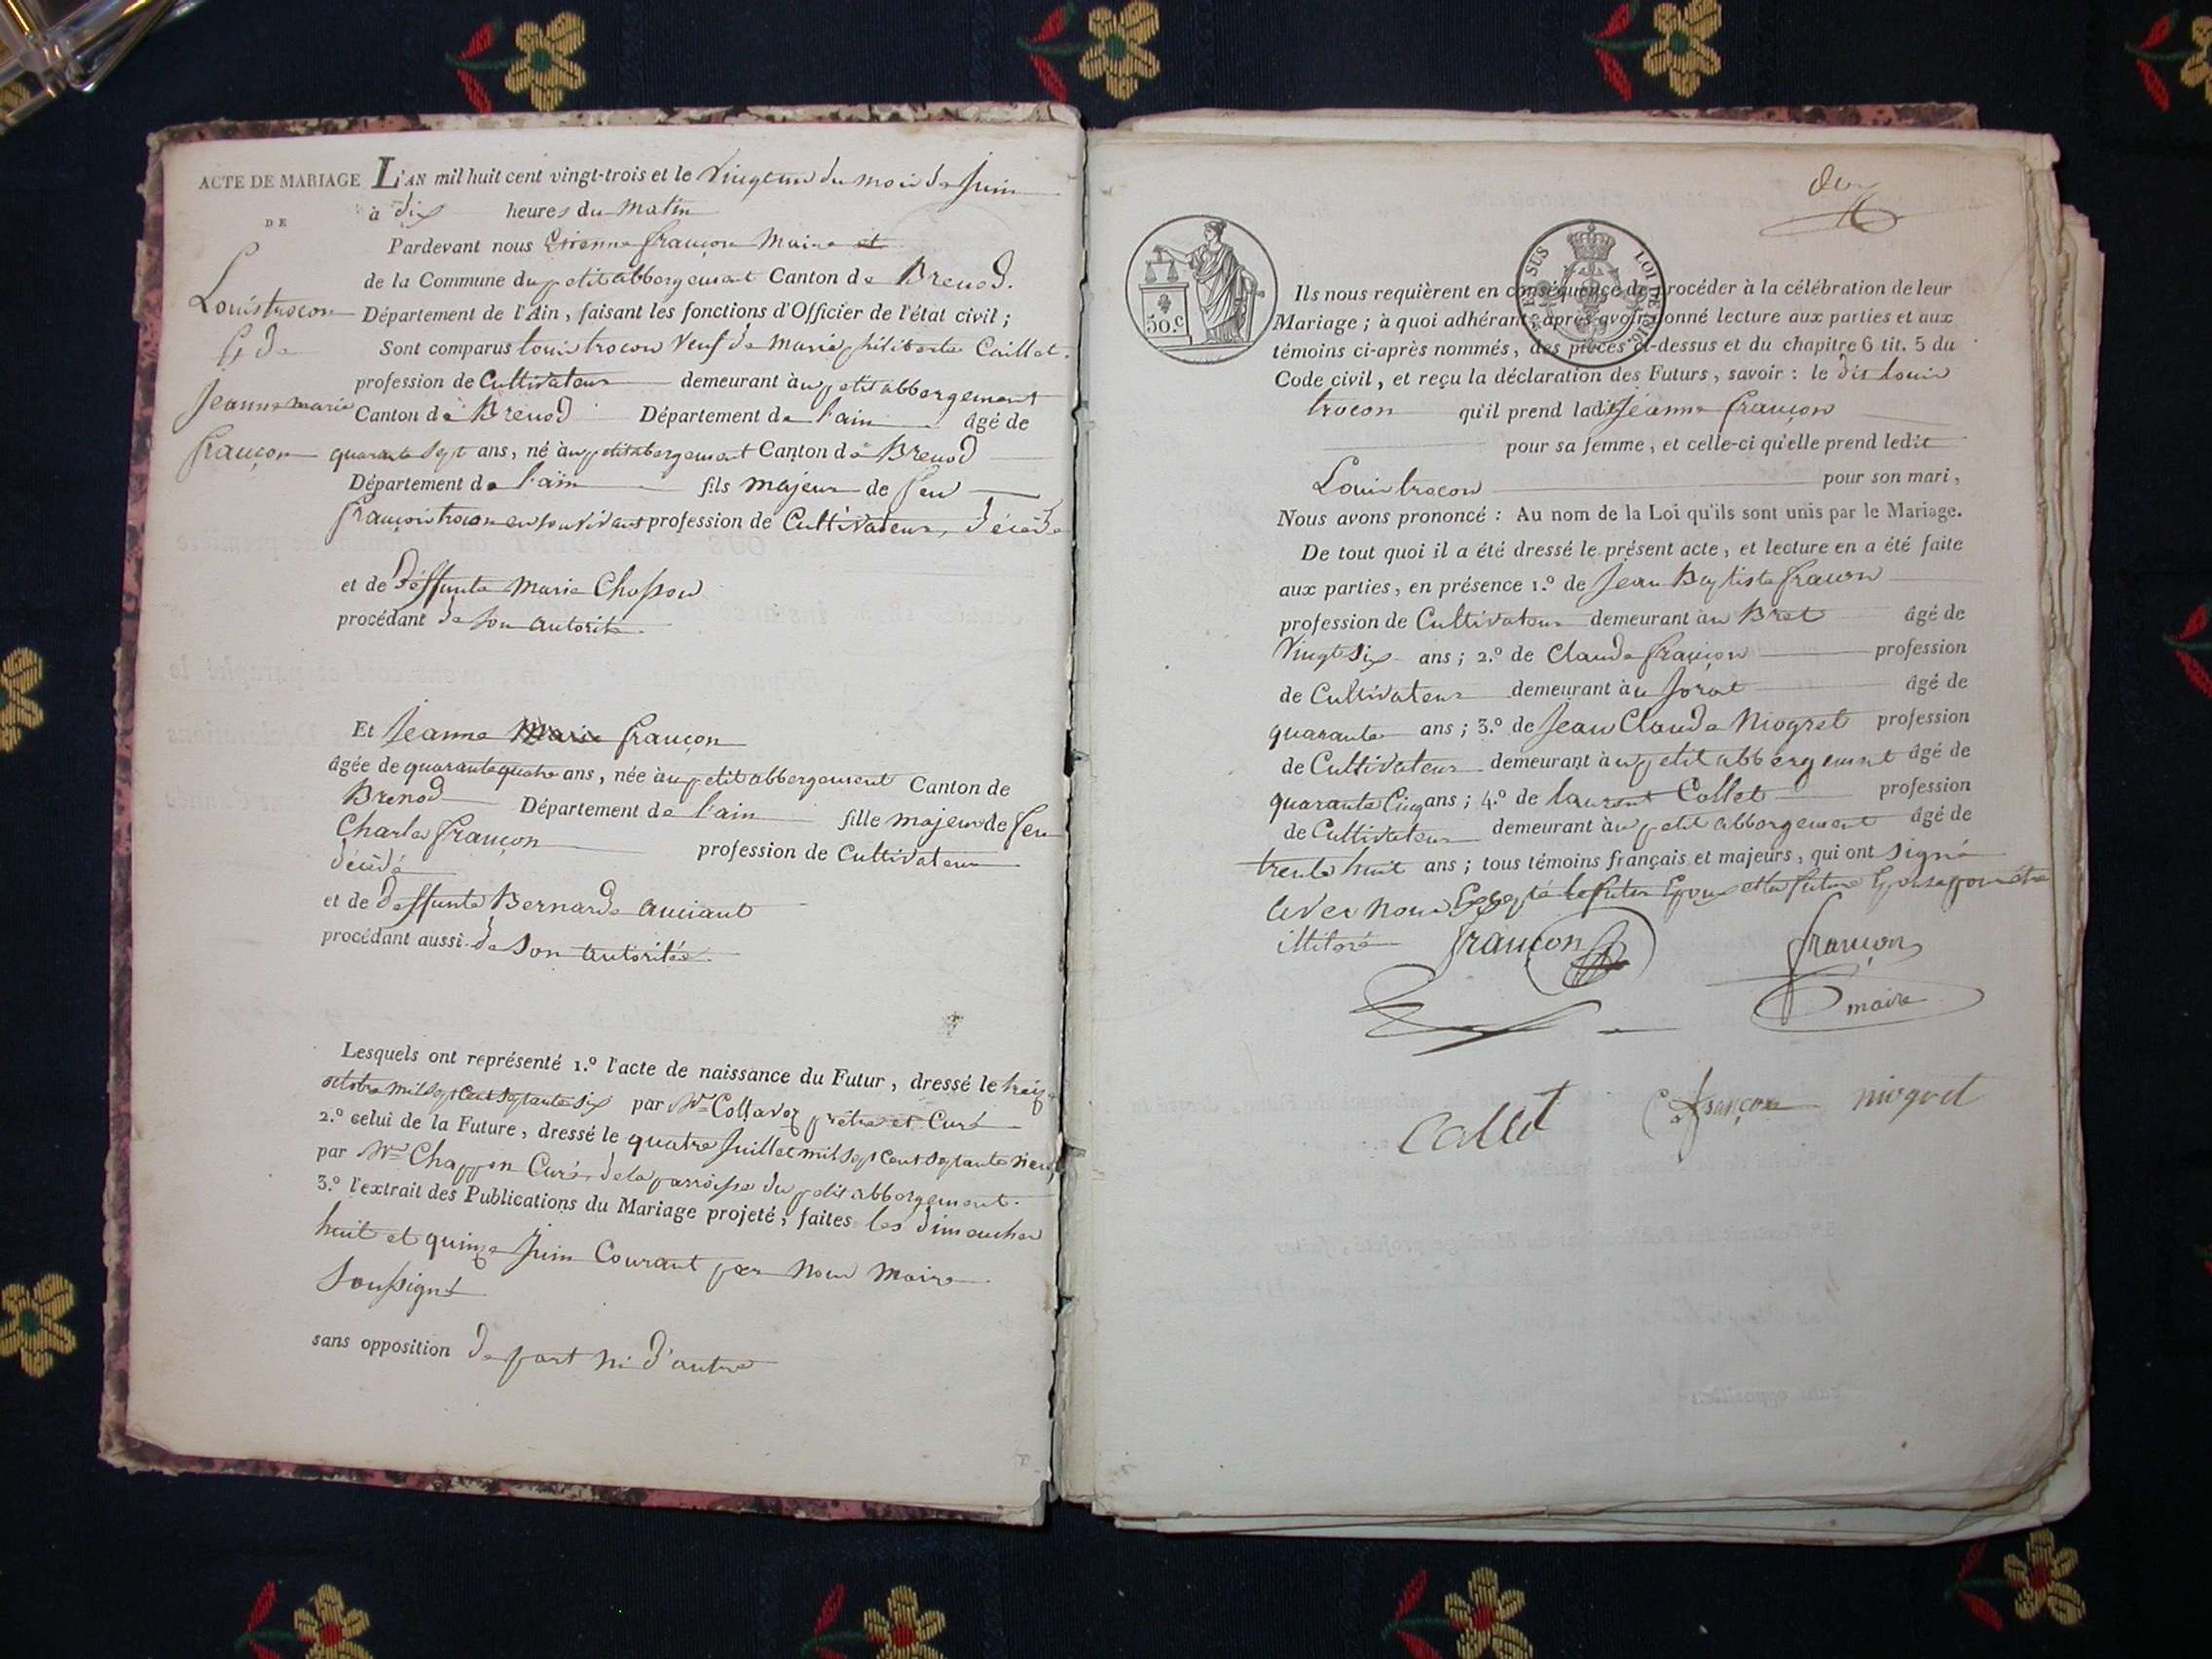 ACTE DE MARIAGE
DE
Louis trocon
Et de
Jeanne marie
françon
L'AN mil huit cent vingt-trois et le vingt un du mois de Juin
à dix heures du matin
Pardevant nous Etienne françon Maire et
de la Commune du petit abbergement Canton de Brenod.
Département de l'Ain, faisant les fonctions d'Officier de l'état civil ;
Sont comparus Louis trocon Veuf de Marie philiberte Caillet.
profession de Cultivateur demeurant au petit abbergement
Canton de Brenod Département de l'ain âgé de
quarante sept ans, né au petit abergement Canton de Brenod
Département de l'ain fils majeur de feu
françois trocon en son vivant profession de Cultivateur, décédé
et de deffunte Marie Chosson
procédant de son autorité.
Et Jeanne Marie françon
âgée de quarante quatre ans, née au petit abbergement Canton de
Brenod Département de l'ain fille majeur de feu
Charles françon profession de Cultivateur
décédé
et de deffunte Bernarde
procédant aussi de son autoritée.
Lesquels ont représenté 1.º l'acte de naissance du Futur, dressé le treize
octobre mil sept Cent septante six par Mre prêtre et Curé
2.º celui de la Future, dressé le quatre Juillet mil sept Cent septante neuf
par Mre Curé, de la parroisse du petit abbergement.
3.º l'extrait des Publications du Mariage projeté, faites les dimanches
huit et quinze Juin Courant par nous Maire
soussigné
sans opposition de part ni d'autre
50.C
SUS LOI DE 1816.
Ils nous requièrent en conséquence de procéder à la célébration de leur
Mariage ; à quoi adhérant, après avoir donné lecture aux parties et aux
témoins ci-après nommés, des pièces ci-dessus et du chapitre 6 tit. 5 du
Code civil, et reçu la déclaration des Futurs, savoir : le dit Louis
trocon qu'il prend ladite Jeanne françon
pour sa femme, et celle-ci qu'elle prend ledit
Louis trocon pour son mari,
Nous avons prononcé : Au nom de la Loi qu'ils sont unis par le Mariage.
De tout quoi il a été dressé le présent acte, et lecture en a été faite
aux parties, en présence 1.º de Jean Baptiste françon
profession de Cultivateur demeurant au Bret âgé de
Vingt six ans ; 2.º de Claude françon profession
de Cultivateur demeurant au Jorat âgé de
quarante ans ; 3.º de Jean Claude Niogret profession
de Cultivateur demeurant au petit abbergement âgé de
quarante Cinq ans ; 4.º de laurent Collet profession
de Cultivateur demeurant au petit abborgement âgé de
trente huit ans ; tous témoins français et majeurs, qui ont signé
avec nous Excepté le futur Epoux et la future Epouse pour etre
illitéré françon françon
maire
Collet C françon niogret